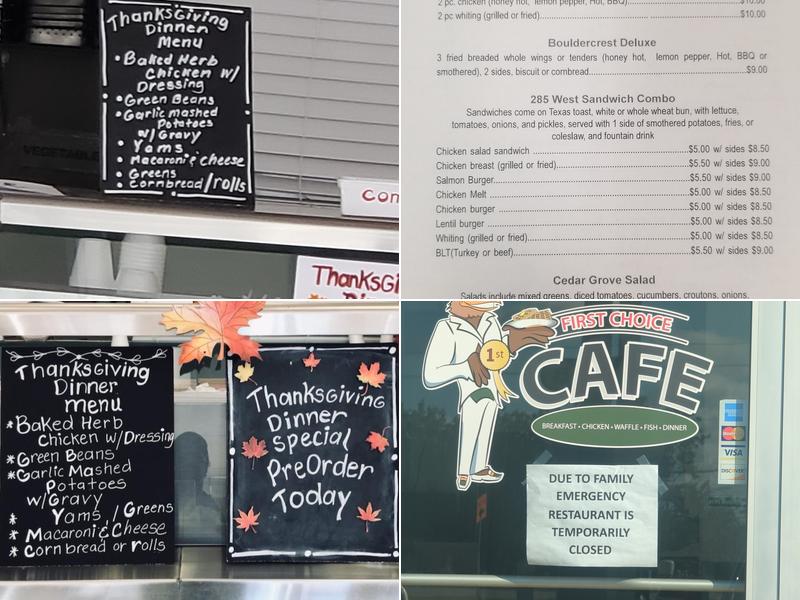 Thanksgiving
Dinner
Menu
• Baked Herb
Chicken w/
Dressing
• Green Beans
• Garlic mashed
Potatoes
w/Gravy
• Yams
• Macaroni & cheese
• Greens
• Cornbread/rolls
VEGETABLE
Con
ThanksGi
2 pc. chicken (honey hot, lemon pepper, Hot, BBQ)..........$10.00
2 pc whiting (grilled or fried)..........$10.00
Bouldercrest Deluxe
3 fried breaded whole wings or tenders (honey hot, lemon pepper, Hot, BBQ or
smothered), 2 sides, biscuit or cornbread..........$9.00
285 West Sandwich Combo
Sandwiches come on Texas toast, white or whole wheat bun, with lettuce,
tomatoes, onions, and pickles, served with 1 side of smothered potatoes, fries, or
coleslaw, and fountain drink
Chicken salad sandwich ..........$5.00 w/ sides $8.50
Chicken breast (grilled or fried)..........$5.50 w/ sides $9.00
Salmon Burger..........$5.50 w/ sides $9.00
Chicken Melt ..........$5.00 w/ sides $8.50
Chicken burger ..........$5.00 w/ sides $8.50
Lentil burger ..........$5.00 w/ sides $8.50
Whiting (grilled or fried)..........$5.00 w/ sides $8.50
BLT(Turkey or beef)..........$5.50 w/ sides $9.00
Cedar Grove Salad
Salads include mixed greens, diced tomatoes, cucumbers, croutons, onions,
Thanksgiving
Dinner
menu
* Baked Herb
Chicken w/Dressing
* Green Beans
* Garlic Mashed
Potatoes
w/Gravy
* Yams / Greens
* Macaroni & Cheese
* Cornbread or rolls
Thanksgiving
Dinner
Special
PreOrder
Today
FIRST CHOICE
1st
CAFE
BREAKFAST • CHICKEN • WAFFLE • FISH • DINNER
VISA
DISCOVER
DUE TO FAMILY
EMERGENCY
RESTAURANT IS
TEMPORARILY
CLOSED